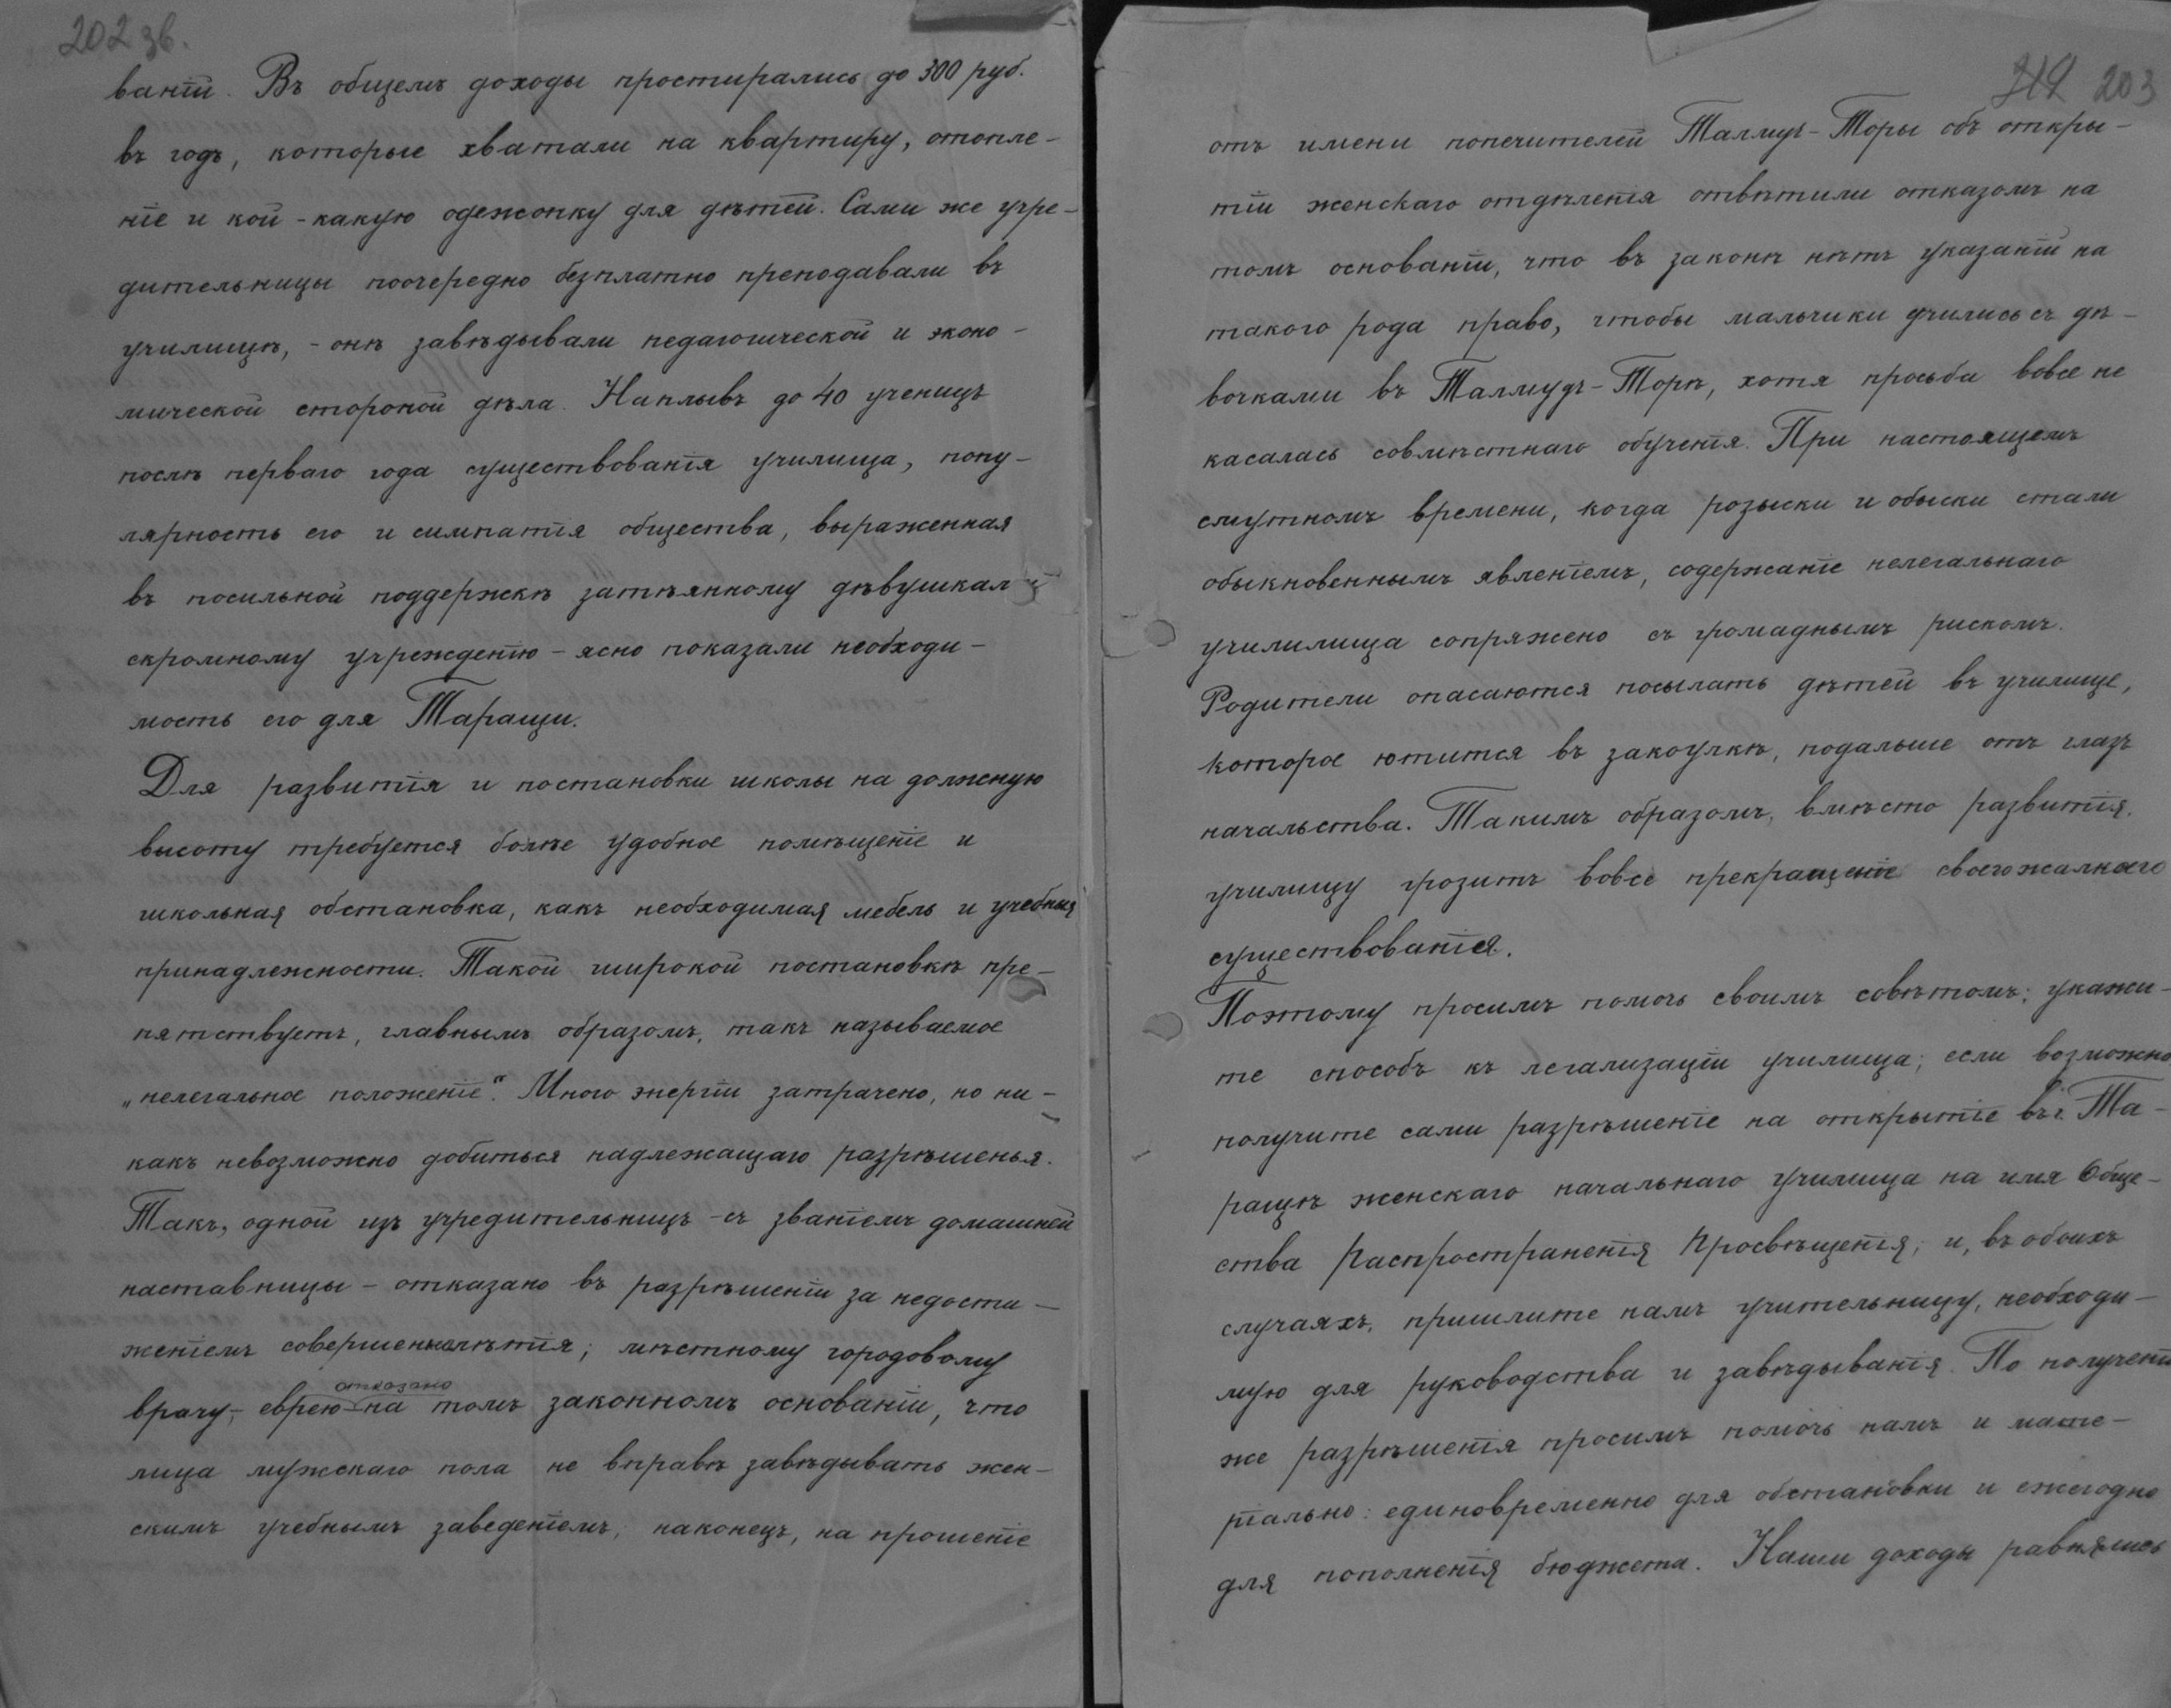 202 зв.
ваній. Въ общемъ доходы простирались до 300 руб.
въ годъ, которые хватали на квартиру, отопле-
ніе и кой-какую одежонку для дѣтей. Сами же учре-
дительницы поочередно безплатно преподавали въ
училищѣ, - онѣ завѣдывали педагогической и эконо-
мической стороной дѣла. Наплывъ до 40 ученицъ
послѣ перваго года существованія училища, попу-
лярность его и симпатія общества, выраженная
въ посильной поддержкѣ затѣянному дѣвушками
скромному учрежденію - ясно показали необходи-
мость его для Таращи.
Для развитія и постановки школы на должную
высоту требуется болѣе удобное помѣщеніе и
школьная обстановка, какъ необходимая мебель и учебныя
принадлежности. Такой широкой постановкѣ пре-
пятствуетъ, главнымъ образомъ, такъ называемое
„нелегальное положеніе“. Много энергіи затрачено, но ни-
какъ невозможно добиться надлежащаго разрѣшенья.
Такъ, одной изъ учредительницъ - съ званіемъ домашней
наставницы - отказано въ разрѣшеніи за недости-
женіемъ совершеннолѣтія; мѣстному городовому
отказано
врачу, еврею - на томъ законномъ основаніи, что
лица мужскаго пола не вправѣ завѣдывать жен-
скимъ учебнымъ заведеніемъ, наконецъ, на прошеніе
203
отъ имени попечителей Талмудъ-Торы объ откры-
тіи женскаго отдѣленія отвѣтили отказомъ на
томъ основаніи, что въ законѣ нѣтъ указаній на
такого рода право, чтобы мальчики учились съ дѣ-
вочками въ Талмудъ-Торѣ, хотя просьба вовсе не
касалась совмѣстнаго обученія. При настоящемъ
смутномъ времени, когда розыски и обыски стали
обыкновеннымъ явленіемъ, содержаніе нелегальнаго
училилища сопряжено съ громаднымъ рискомъ.
Родители опасаются посылать дѣтей въ училище,
которое ютится въ закоулкѣ, подальше отъ глазъ
начальства. Такимъ образомъ, вмѣсто развитія,
училищу грозитъ вовсе прекращеніе своего жалкаго
существованія.
Поэтому просимъ помочь своимъ совѣтомъ; укажи-
те способъ къ легализаціи училища; если возможно
получите сами разрѣшеніе на открытіе въ г. Та-
ращѣ женскаго начальнаго училища на имя Обще-
ства Распространенія Просвѣщенія; и, въ обоихъ
случаяхъ, пришлите намъ учительницу, необходи-
мую для руководства и завѣдыванія. По полученіи
же разрѣшенія просимъ помочь намъ и мате-
ріально: единовременно для обстановки и ежегодно
для пополненія бюджета. Наши доходы равнялись